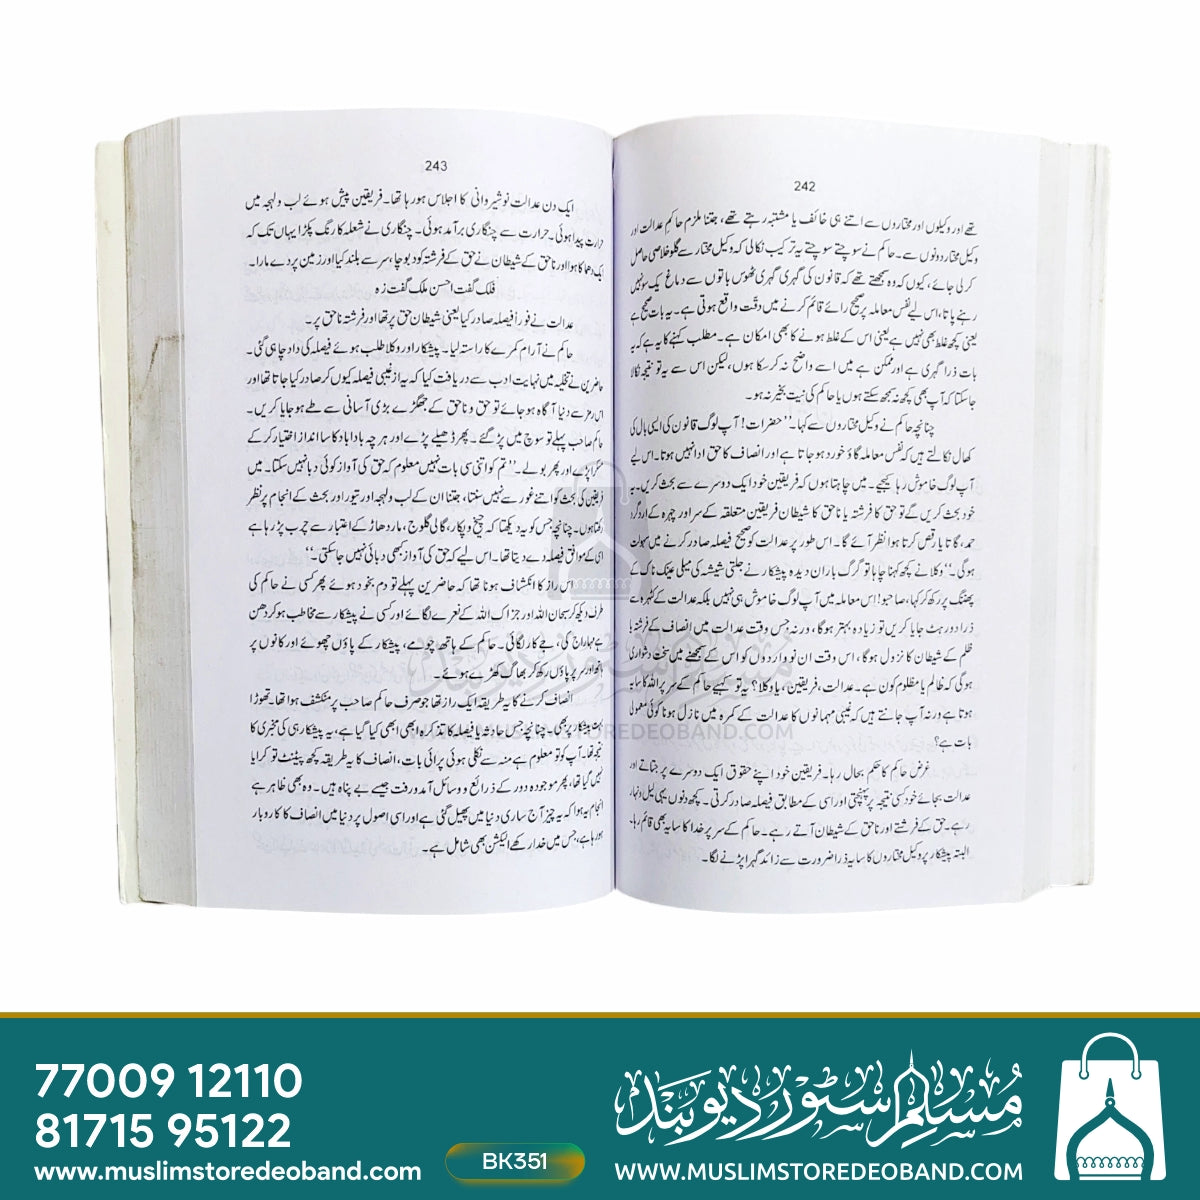 242
تھے اور وکیلوں اور مختاروں سے اتنے ہی خائف یا مشتبہ رہتے تھے، جتنا ملزم حاکم عدالت اور
وکیل مختار دونوں سے۔ حاکم نے سوچتے سوچتے یہ ترکیب نکالی کہ وکیل مختار سے گلو خلاصی حاصل
کر لی جائے، کیوں کہ وہ سمجھتے تھے کہ قانون کی گہری گہری ٹھوس باتوں سے دماغ یک سو نہیں
رہنے پاتا، اس لیے نفس معاملہ پر صحیح رائے قائم کرنے میں دقّت واقع ہوتی ہے۔ یہ بات صحیح ہے
یعنی کچھ غلط بھی نہیں ہے یعنی اس کے غلط ہونے کا بھی امکان ہے۔ مطلب کہنے کا یہ ہے کہ یہ
بات ذرا گہری ہے اور ممکن ہے میں اسے واضح نہ کر سکا ہوں، لیکن اس سے یہ تو نتیجہ نکالا
جا سکتا کہ آپ بھی کچھ نہ سمجھ سکتے ہوں یا حاکم کی نیت بخیر نہ ہو۔
چنانچہ حاکم نے وکیل مختاروں سے کہا۔ ’’حضرات! آپ لوگ قانون کی ایسی بال کی
کھال نکالتے ہیں کہ نفس معاملہ گاؤ خورد ہو جاتا ہے اور انصاف کا حق ادا نہیں ہوتا۔ اس لیے
آپ لوگ خاموش رہا کیجیے۔ میں چاہتا ہوں کہ فریقین خود ایک دوسرے سے بحث کریں۔ یہ
خود بحث کریں گے تو حق کا فرشتہ یا ناحق کا شیطان فریقین متعلقہ کے سر اور چہرہ کے ارد گرد
حمد، گاتا یا رقص کرتا ہوا نظر آئے گا۔ اس طور پر عدالت کو صحیح فیصلہ صادر کرنے میں سہولت
ہوگی۔‘‘ وکلا نے کچھ کہنا چاہا تو گرگ باراں دیدہ پیشکار نے جلتی شیشہ کی میلی عینک ناک کے
پھننگ پر رکھ کر کہا، صاحبو! اس معاملہ میں آپ لوگ خاموش ہی نہیں بلکہ عدالت کے کٹہرہ سے
ذرا دور ہٹ جایا کریں تو زیادہ بہتر ہوگا، ورنہ جس وقت عدالت میں انصاف کے فرشتہ یا
ظلم کے شیطان کا نزول ہوگا، اس وقت ان نوواردوں کو اس کے سمجھنے میں سخت دشواری
ہوگی کہ ظالم یا مظلوم کون ہے۔ عدالت، فریقین، یا وکلا؟ یہ تو کہیے حاکم کے سر پر اللہ کا سایہ
ہوتا ہے ورنہ آپ جانتے ہیں کہ غیبی مہمانوں کا عدالت کے کمرہ میں نازل ہونا کوئی معمولی
بات ہے؟
غرض حاکم کا حکم بحال رہا۔ فریقین خود اپنے حقوق ایک دوسرے پر جتاتے اور
عدالت بجائے خود کسی نتیجہ پر پہنچتی اور اسی کے مطابق فیصلہ صادر کرتی۔ کچھ دنوں یہی لیل و نہار
رہے۔ حق کے فرشتے اور ناحق کے شیطان آتے رہے۔ حاکم کے سر پر خدا کا سایہ بھی قائم رہا۔
البتہ پیشکار پر وکیل مختاروں کا سایہ ذرا ضرورت سے زائد گہرا پڑنے لگا۔
243
ایک دن عدالت نوشیروانی کا اجلاس ہو رہا تھا۔ فریقین پیش ہوئے لب ولہجہ میں
حرارت پیدا ہوئی۔ حرارت سے چنگاری برآمد ہوئی۔ چنگاری نے شعلہ کا رنگ پکڑا یہاں تک کہ
ایک دھماکا ہوا اور ناحق کے شیطان نے حق کے فرشتہ کو دبوچا، سر سے بلند کیا اور زمین پر دے مارا۔
فلک گفت احسن ملک گفت زہ
عدالت نے فوراً فیصلہ صادر کیا یعنی شیطان حق پر تھا اور فرشتہ ناحق پر۔
حاکم نے آرام کمرے کا راستہ لیا۔ پیشکار اور وکلا طلب ہوئے فیصلہ کی داد چاہی گئی۔
حاضرین نے تخلیہ میں نہایت ادب سے دریافت کیا کہ یہ از غیبی فیصلہ کیوں کر صادر کیا جاتا تھا اور
اس رمز سے دنیا آگاہ ہو جائے تو حق و ناحق کے جھگڑے بڑی آسانی سے طے ہو جایا کریں۔
حاکم صاحب پہلے تو سوچ میں پڑ گئے۔ پھر ڈھیلے پڑے اور ہر چہ بادا باد کا سا انداز اختیار کر کے
مسکرائے اور پھر بولے۔ ’’تم کو اتنی سی بات نہیں معلوم کہ حق کی آواز کوئی دبا نہیں سکتا۔ میں
فریقین کی بحث کو اتنے غور سے نہیں سنتا، جتنا ان کے لب ولہجہ اور تیور اور بحث کے انجام پر نظر
رکھتا ہوں۔ چنانچہ جس کو یہ دیکھتا کہ چیخ و پکار، گالی گلوج، مار دھاڑ کے اعتبار سے چرب پڑ رہا ہے
اسی کے موافق فیصلہ دے دیتا تھا۔ اس لیے کہ حق کی آواز کبھی دبائی نہیں جا سکتی۔‘‘
اس راز کا انکشاف ہونا تھا کہ حاضرین پہلے تو دم بخود ہوئے پھر کسی نے حاکم کی
طرف دیکھ کر سبحان اللہ اور جزاک اللہ کے نعرے لگائے اور کسی نے پیشکار سے مخاطب ہو کر دھن
ہے مہاراج کی، جے کار لگائی۔ حاکم کے ہاتھ چومے، پیشکار کے پاؤں چھوئے اور کانوں پر
ہاتھ اور سر پر پاؤں رکھ کر بھاگ کھڑے ہوئے۔
انصاف کرنے کا یہ طریقہ ایک راز تھا جو صرف حاکم صاحب پر منکشف ہوا تھا۔ تھوڑا
بہت پیشکار پر بھی۔ چنانچہ جس حادثہ یا فیصلہ کا تذکرہ ابھی ابھی کیا گیا ہے، یہ پیشکار ہی کی مخبری کا
نتیجہ تھا۔ آپ کو تو معلوم ہے منہ سے نکلی ہوئی پرائی بات، انصاف کا یہ طریقہ کچھ پیٹنٹ تو کرایا
نہیں گیا تھا، پھر موجودہ دور کے ذرائع و وسائل آمد و رفت جیسے بے پناہ ہیں۔ وہ بھی ظاہر ہے
انجام یہ ہوا کہ یہ چیز آج ساری دنیا میں پھیل گئی ہے اور اسی اصول پر دنیا میں انصاف کا کاروبار
ہو رہا ہے، جس میں خدا رکھے الیکشن بھی شامل ہے۔
مسلم سٹور دیوبند
WWW.MUSLIMSTOREDEOBAND.COM
77009 12110
81715 95122
www.muslimstoredeoband.com
BK351
مسلم سٹور دیوبند
WWW.MUSLIMSTOREDEOBAND.COM